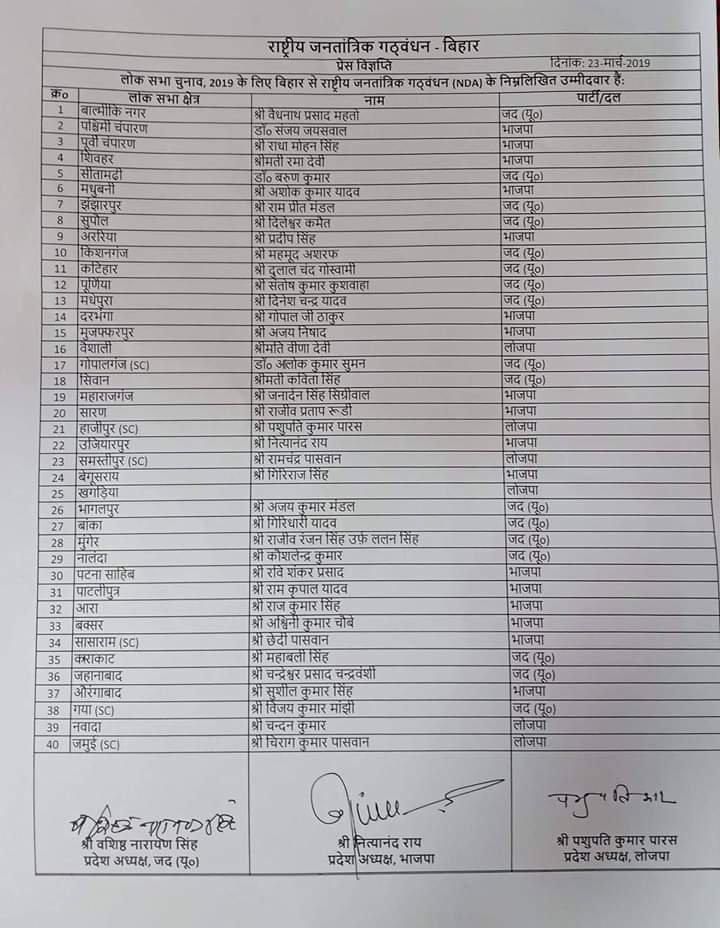 राष्ट्रीय जनतांत्रिक गठ्वंधन - बिहार
प्रेस विज्ञप्ति दिनांक: 23-मार्च-2019
लोक सभा चुनाव, 2019 के लिए बिहार से राष्ट्रीय जनतांत्रिक गठ्वंधन (NDA) के निम्नलिखित उम्मीदवार हैं:
क्र० लोक सभा क्षेत्र नाम पार्टी/दल
1 बाल्मीकि नगर श्री वैधनाथ प्रसाद महतो जद (यू०)
2 पश्चिमी चंपारण डॉ० संजय जयसवाल भाजपा
3 पूर्वी चंपारण श्री राधा मोहन सिंह भाजपा
4 शिवहर श्रीमती रमा देवी भाजपा
5 सीतामढ़ी डॉ० बरुण कुमार जद (यू०)
6 मधुबनी श्री अशोक कुमार यादव भाजपा
7 झंझारपुर श्री राम प्रीत मंडल जद (यू०)
8 सुपौल श्री दिलेश्वर कमैत जद (यू०)
9 अररिया श्री प्रदीप सिंह भाजपा
10 किशनगंज श्री महमूद अशरफ जद (यू०)
11 कटिहार श्री दुलाल चंद गोस्वामी जद (यू०)
12 पूर्णिया श्री संतोष कुमार कुशवाहा जद (यू०)
13 मधेपुरा श्री दिनेश चन्द्र यादव जद (यू०)
14 दरभंगा श्री गोपाल जी ठाकुर भाजपा
15 मुजफ्फरपुर श्री अजय निषाद भाजपा
16 वैशाली श्रीमति वीणा देवी लोजपा
17 गोपालगंज (SC) डॉ० आलोक कुमार सुमन जद (यू०)
18 सिवान श्रीमती कविता सिंह जद (यू०)
19 महाराजगंज श्री जनार्दन सिंह सिग्रीवाल भाजपा
20 सारण श्री राजीव प्रताप रूडी भाजपा
21 हाजीपुर (SC) श्री पशुपति कुमार पारस लोजपा
22 उजियारपुर श्री नित्यानंद राय भाजपा
23 समस्तीपुर (SC) श्री रामचंद्र पासवान लोजपा
24 बेगूसराय श्री गिरिराज सिंह भाजपा
25 खगड़िया लोजपा
26 भागलपुर श्री अजय कुमार मंडल जद (यू०)
27 बांका श्री गिरिधारी यादव जद (यू०)
28 मुंगेर श्री राजीव रंजन सिंह उर्फ़ ललन सिंह जद (यू०)
29 नालंदा श्री कौशलेन्द्र कुमार जद (यू०)
30 पटना साहिब श्री रवि शंकर प्रसाद भाजपा
31 पाटलीपुत्र श्री राम कृपाल यादव भाजपा
32 आरा श्री राज कुमार सिंह भाजपा
33 बक्सर श्री अश्विनी कुमार चौबे भाजपा
34 सासाराम (SC) श्री छेदी पासवान भाजपा
35 काराकाट श्री महाबली सिंह जद (यू०)
36 जहानाबाद श्री चन्द्रेश्वर प्रसाद चन्द्रवंशी जद (यू०)
37 औरंगाबाद श्री सुशील कुमार सिंह भाजपा
38 गया (SC) श्री विजय कुमार मांझी जद (यू०)
39 नवादा श्री चन्दन कुमार लोजपा
40 जमुई (SC) श्री चिराग कुमार पासवान लोजपा
श्री वशिष्ठ नारायण सिंह
प्रदेश अध्यक्ष, जद (यू०)
श्री नित्यानंद राय
प्रदेश अध्यक्ष, भाजपा
श्री पशुपति कुमार पारस
प्रदेश अध्यक्ष, लोजपा